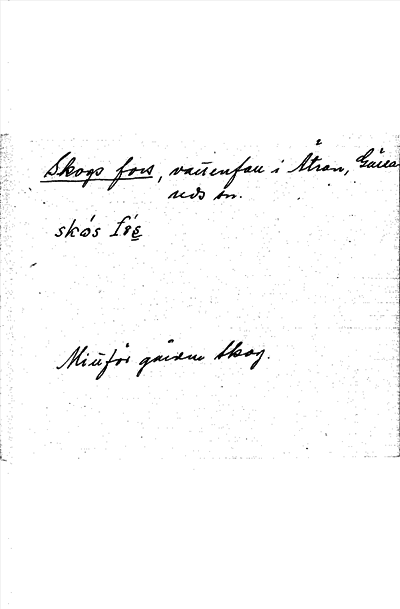 Skogs fors, vattenfall i Ätran, Gälla
reds sn.
skós fós
Mitt för gården Skog.